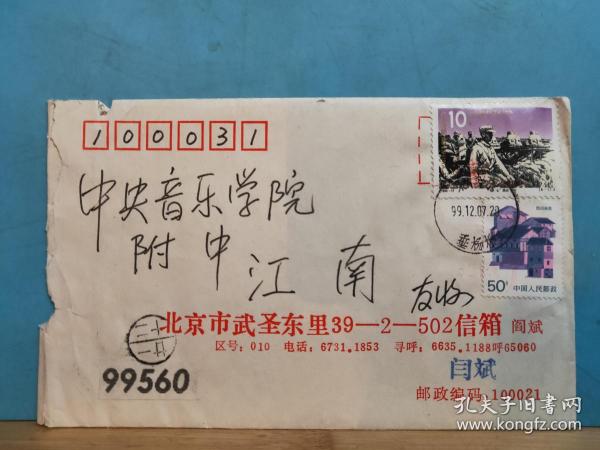 100031
10
99.12.07.20
中央音乐学院
附中
江南
友收
50分
中国人民邮政
北京市武圣东里39—2—502信箱 阎斌
区号:010 电话:6731.1853 寻呼:6635.1188呼65060
闫斌
99560
邮政编码:100021
孔夫子旧书网
www.kongfz.com